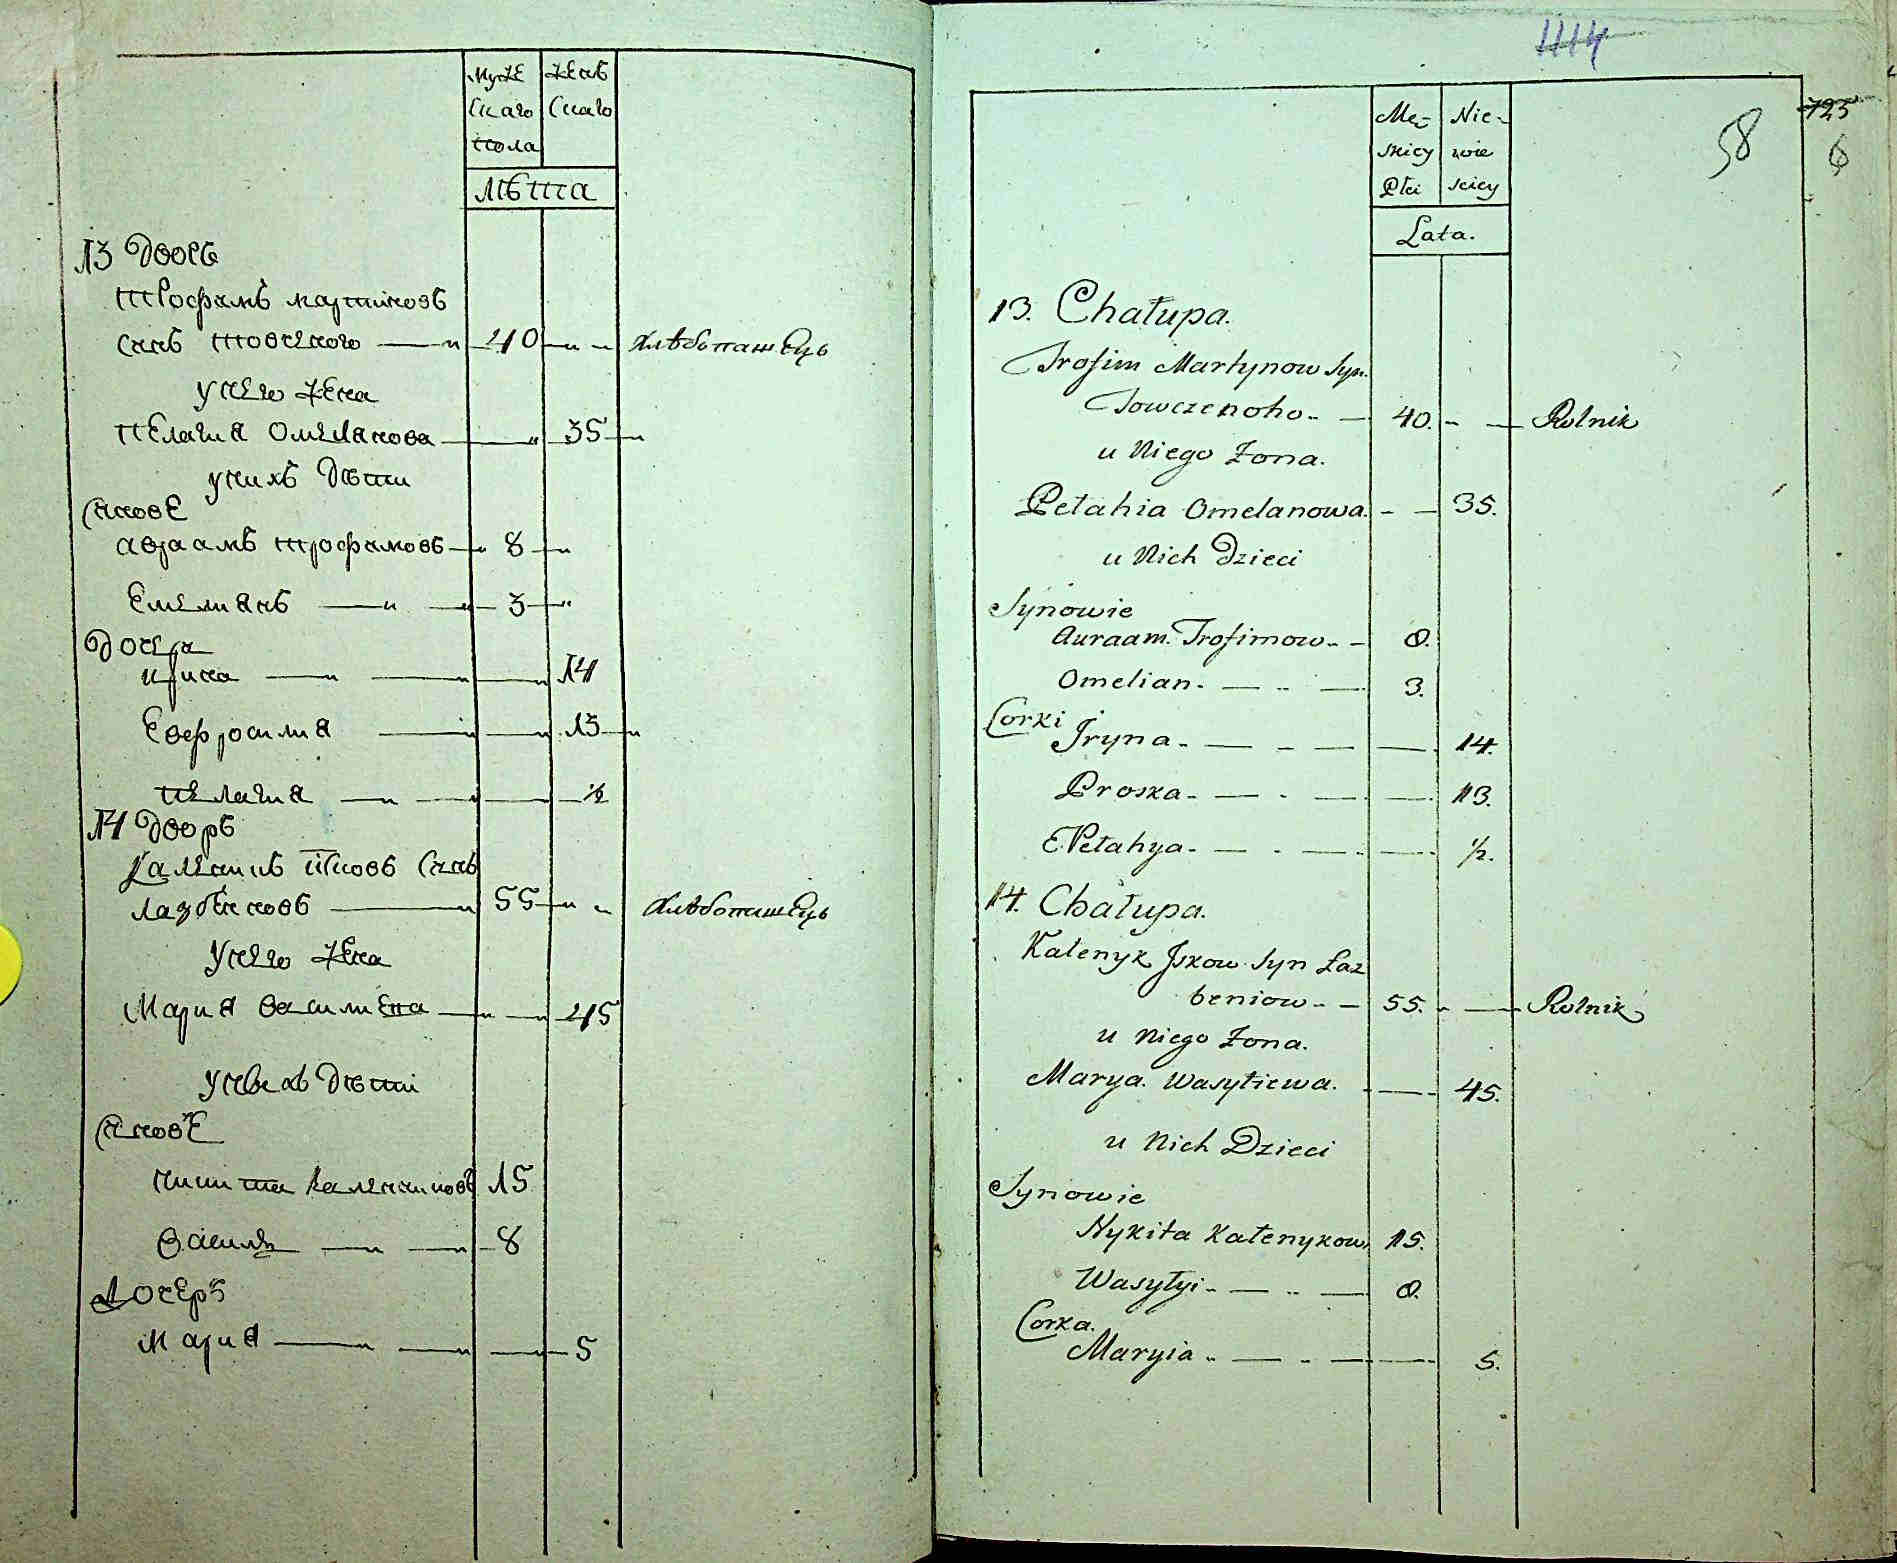 Муже Женс
скаго скаго
пола
Лѣта
13 Дворъ
Трофимъ мартиновъ
синъ товченого 40 хлѣбопашецъ
у него жена
пелагия Омеляновa 35
у нихъ дѣти
синове
авраамъ трофимовъ 8
Емелиянъ 3
Дочера
ирина 14
Евфросиния 13
пелагия 1/2
14 Дворъ
Каленикъ
лазбеневъ 55 хлѣбопашецъ
У него жена
Мария василиева 45
У нихъ дѣти
синовѣ
никита калениковъ 15
Василь 8
Дочеръ
Мария 5
1114
725
58
6
Mę- Nie-
skiey wie
Płci sciey
Lata.
13. Chałupa.
Trofim Martynow Syn.
Towczenoho - — 40. - — Rolnik
u Niego Żona.
Pełahia Omelanowa. - — 35.
u Nich Dzieci
Synowie
Auraam. Trofimow - - 8.
Omelian. — - — 3.
Corki
Jryna. — - — 14.
Proska. — - — 13.
Pełahya. — - — 1/2.
14. Chałupa.
Kałenyk Jskow Syn Łaz
beniow - — 55. - — Rolnik
u Niego Żona.
Marya. Wasyliewa. — 45.
u Nich Dzieci
Synowie
Nykita Kałenykow 15.
Wasyłyi - — - — 8.
Corka.
Maryia - — - — 5.